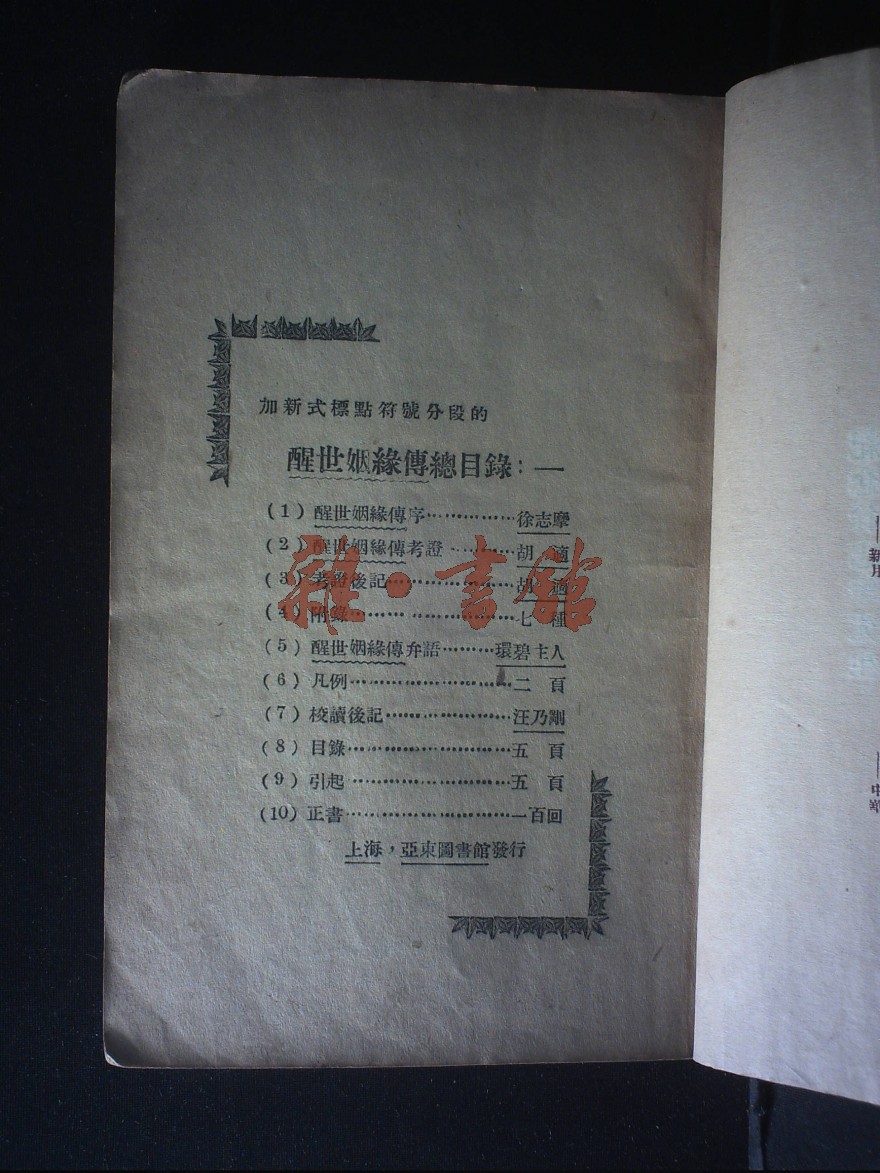 加新式標點符號分段的
醒世姻緣傳總目錄：—
(1) 醒世姻緣傳序……………徐志摩
(2) 醒世姻緣傳考證…………胡 適
(3) 考證後記…………………胡 適
(4) 附錄………………………七 種
(5) 醒世姻緣傳弁語………環碧主人
(6) 凡例………………………二 頁
(7) 校讀後記…………………汪乃剛
(8) 目錄………………………五 頁
(9) 引起………………………五 頁
(10) 正書………………………一百回
上海，亞東圖書館發行
雜·書館